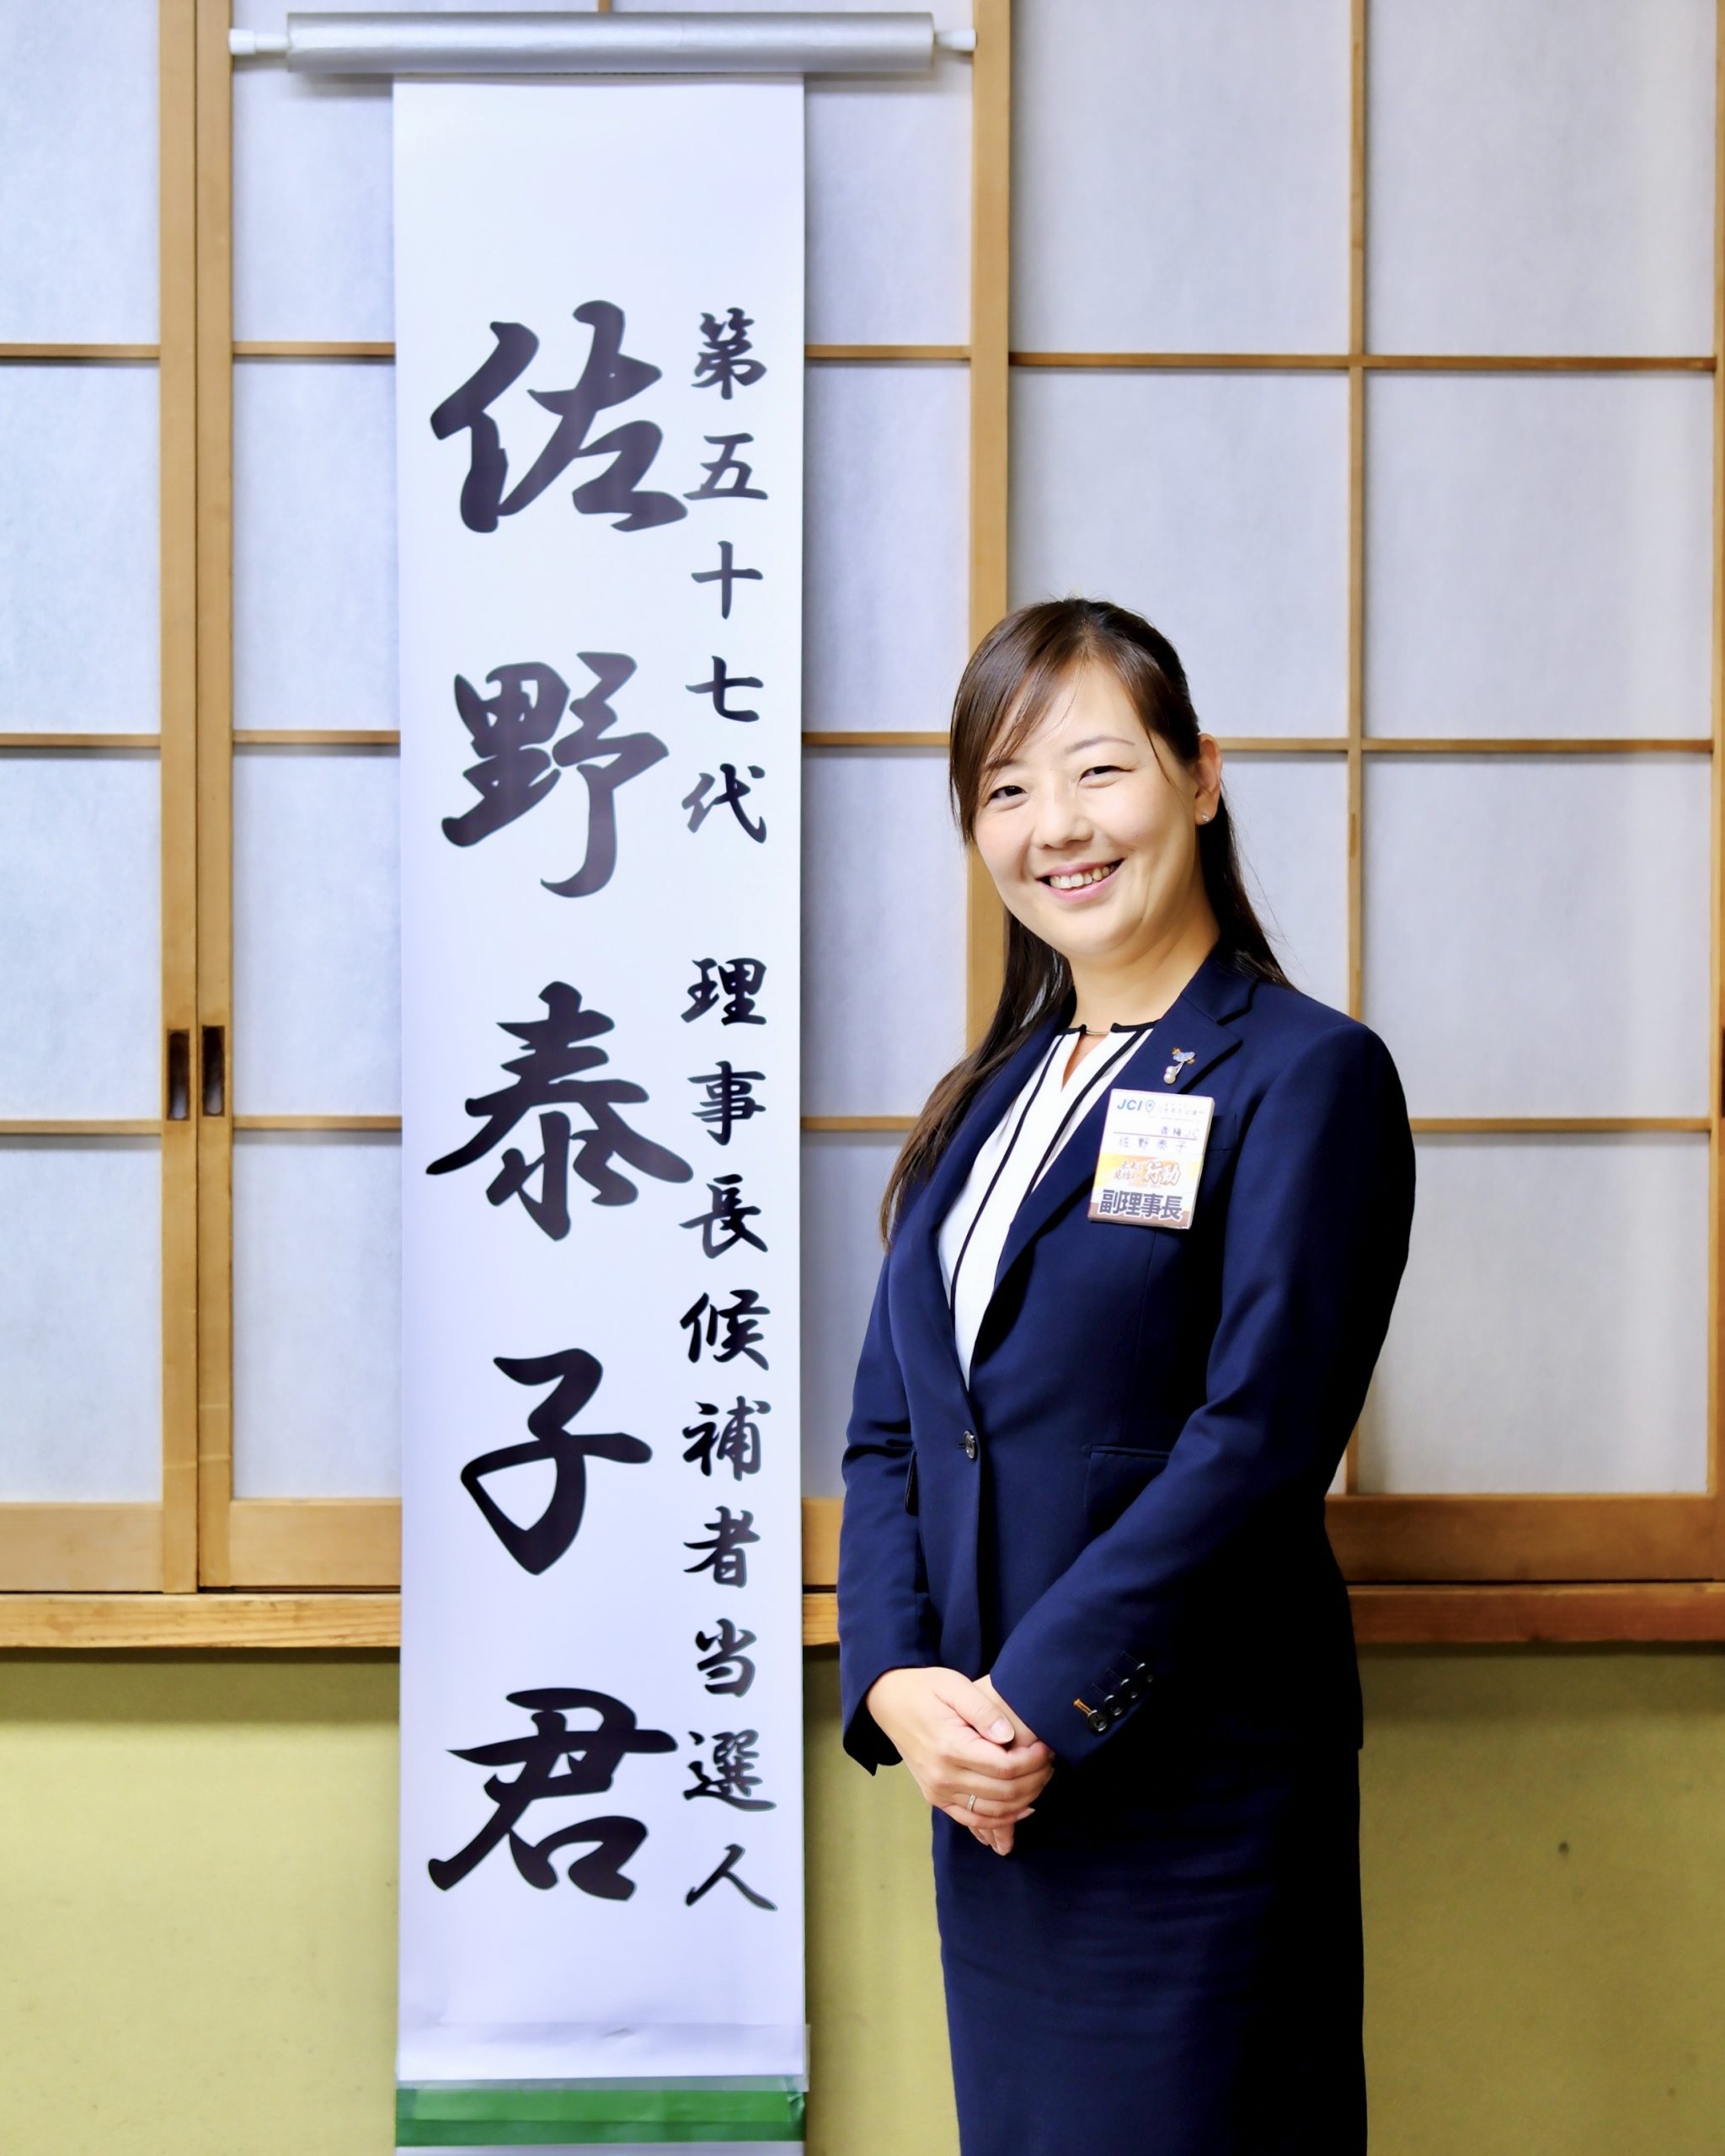 第五十七代 理事長候補者当選人
佐野泰子君
JCI
青梅JC
佐野泰子
行動
副理事長